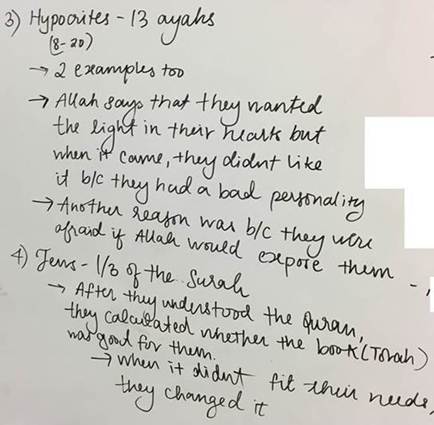 3) Hypocrites - 13 ayahs
(8-20)
→ 2 examples too
→ Allah says that they wanted
the light in their hearts but
when it came, they didnt like
it b/c they had a bad personality
→ Another reason was b/c they were
afraid if Allah would expose them -
4) Jews - 1/3 of the Surah
→ After they understood the Quran,
they calculated whether the book (Torah)
was good for them.
→ when it didnt fit their needs,
they changed it